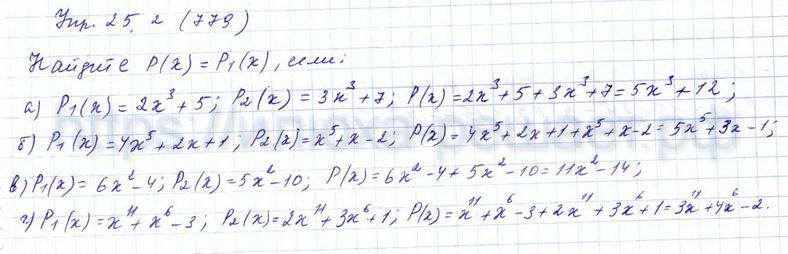 Упр. 25.2 (779)
Найдите P(x) = P₁(x), если:
а) P₁(x) = 2x³ + 5; P₂(x) = 3x³ + 7; P(x) = 2x³ + 5 + 3x³ + 7 = 5x³ + 12;
б) P₁(x) = 4x⁵ + 2x + 1; P₂(x) = x⁵ + x - 2; P(x) = 4x⁵ + 2x + 1 + x⁵ + x - 2 = 5x⁵ + 3x - 1;
в) P₁(x) = 6x² - 4; P₂(x) = 5x² - 10; P(x) = 6x² - 4 + 5x² - 10 = 11x² - 14;
г) P₁(x) = x¹¹ + x⁶ - 3; P₂(x) = 2x¹¹ + 3x⁶ + 1; P(x) = x¹¹ + x⁶ - 3 + 2x¹¹ + 3x⁶ + 1 = 3x¹¹ + 4x⁶ - 2.